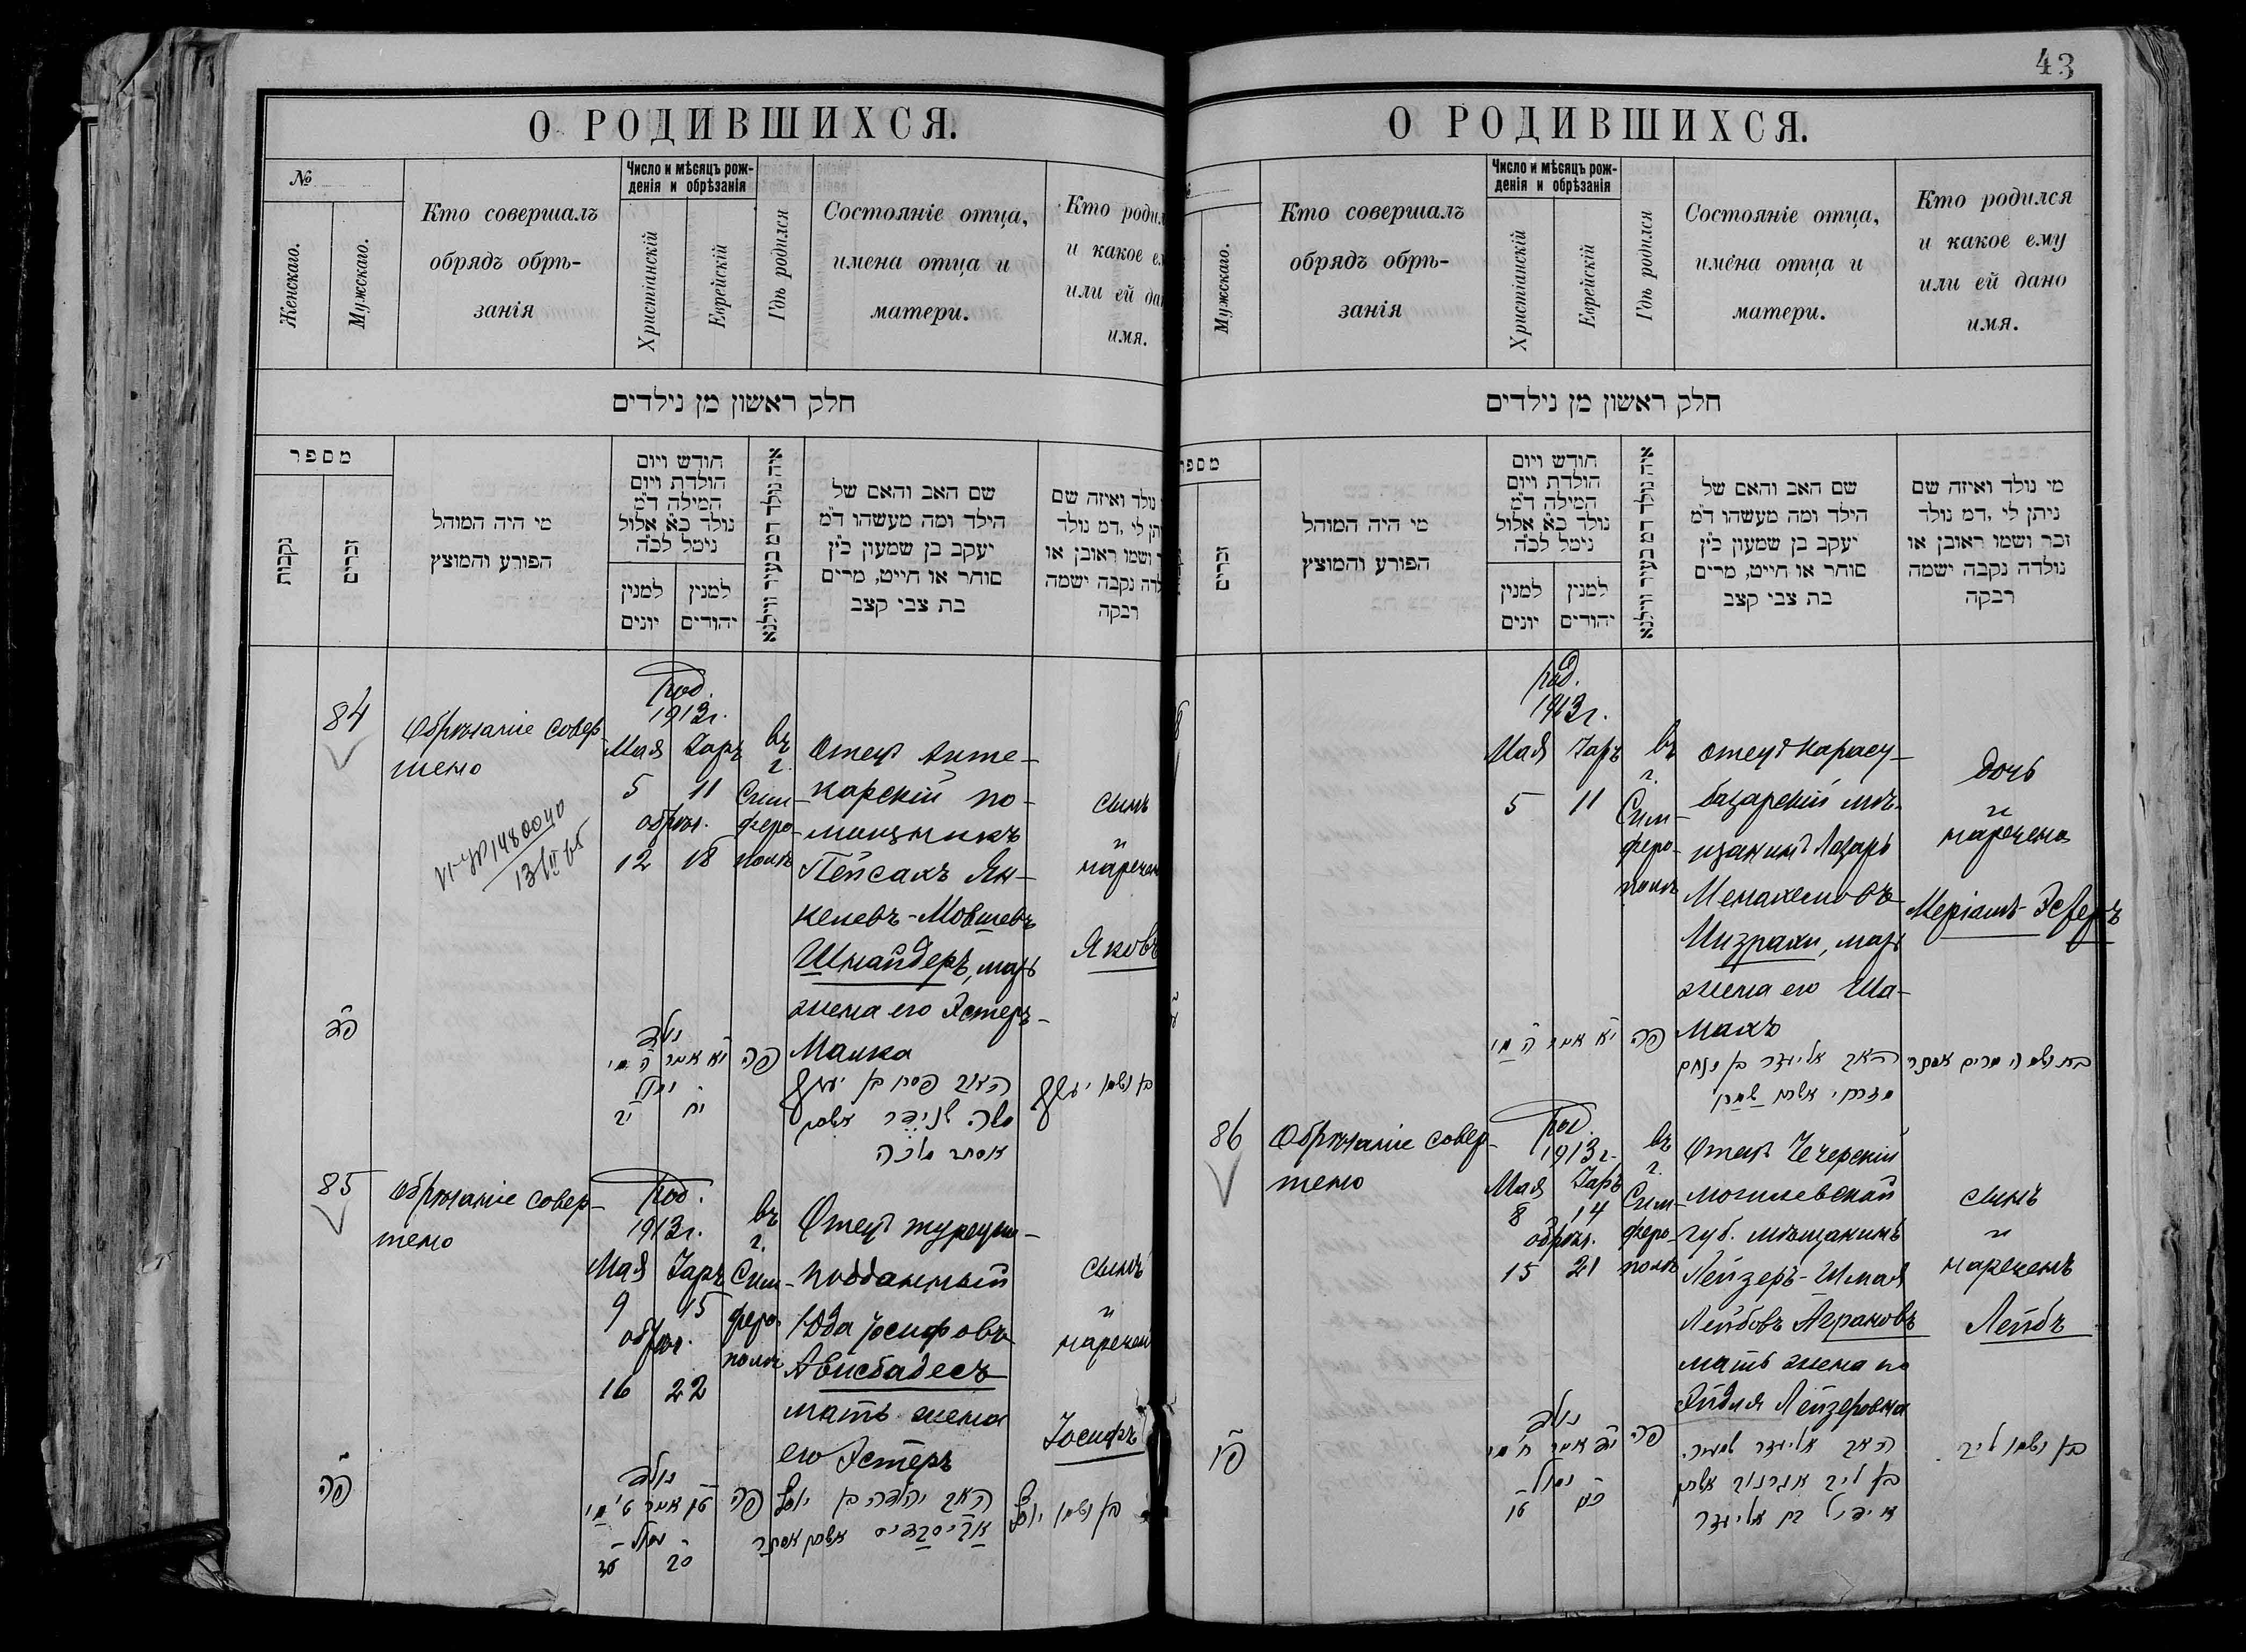 43
О РОДИВШИХСЯ.
№
Женскаго.
Мужскаго.
Кто совершалъ
обрядъ обрѣ-
занія
Число и мѣсяцъ рож-
денія и обрѣзанія
Христіанскій
Еврейскій
Гдѣ родился
Состояніе отца,
имена отца и
матери.
Кто роди
и какое е
или ей да
имя.
חלק ראשון מן נילדים
מספר
נקבות
זכרים
מי היה המוהל
הפורע והמוצץ
חודש ויום
הולדת ויום
המילה ד״מ
נולד כ״א אלול
נימל לכ״ה
למנין
יונים
למנין
יהודים
איה נולד דמ בעיר ווילנא
שם האב והאם של
הילד ומה מעשהו ד״מ
יעקב בן שמעון כ״ץ
סוחר או חייט, מרים
בת צבי קצב
נולד ואיזה שם
תן לי ,דמ נולד
ושמו ראובן או
לדה נקבה ישמה
רבקה
84
Обрѣзаніе совер-
шено
Род.
1913 г.
Мая Іаръ
5 11
обрѣз.
12 18
въ
г.
Сим-
феро-
полѣ
Отецъ Апте-
карскій по-
мощникъ
Пейсахъ Ян-
келевъ-Мовшевъ
Шнайдеръ, мать
жена его Эстеръ-
Малка
сынъ
и
наречен
Яковъ
פד
נולד
י״א אייר ה מיי
נימול
יח יב
פה
האב פסח בן יעקב
משה שניידר אשתו
אסתר מלכה
בן ושמו יעקב
85
Обрѣзаніе совер-
шено
Род.
1913 г.
Мая Іаръ
9 15
обрѣз.
16 22
въ
г.
Сим-
феро-
полѣ
Отецъ турецко-
подданный
Юда Іосифовъ
Ависбадесъ
мать жена
его Эстеръ
сынъ
и
наречен
Іосифъ
פה
נולד
טו אייר ט׳ מיי
נימול
פה
האב יהודה בן יוסף
אביסבדיס אשתו אסתר
בן ושמו יוסף
О РОДИВШИХСЯ.
Мужскаго.
Кто совершалъ
обрядъ обрѣ-
занія
Число и мѣсяцъ рож-
денія и обрѣзанія
Христіанскій
Еврейскій
Гдѣ родился
Состояніе отца,
имена отца и
матери.
Кто родился
и какое ему
или ей дано
имя.
חלק ראשון מן נילדים
מספר
זכרים
מי היה המוהל
הפורע והמוצץ
חודש ויום
הולדת ויום
המילה ד״מ
נולד כ״א אלול
נימל לכ״ה
למנין
יונים
למנין
יהודים
איה נולד דמ בעיר ווילנא
שם האב והאם של
הילד ומה מעשהו ד״מ
יעקב בן שמעון כ״ץ
סוחר או חייט, מרים
בת צבי קצב
מי נולד ואיזה שם
ניתן לי ,דמ נולד
זכר ושמו ראובן או
נולדה נקבה ישמה
רבקה
Род.
1913 г.
Мая Іаръ
5 11
въ
г.
Сим-
феро-
полѣ
отецъ Карасу-
базарскій мѣ-
щанинъ Лазарь
Менахемовъ
Мизрахи, мать
жена его Ма-
махъ
дочь
и
наречена
Меріамъ-Эсферъ
י״א אייר ה מיי
פה
האב אליעזר בן מנחם
מזרחי אשתו
בת ושמה מרים אסתר
86
Обрѣзаніе совер-
шено
Род.
1913 г.
Мая Іаръ
8 14
обрѣз.
15 21
въ
г.
Сим-
феро-
полѣ
Отецъ Чечерскій
могилевской
губ. мѣщанинъ
Лейзеръ-Шмая
Лейбовъ Аграновъ
мать жена его
Эйдля Лейзеровна
сынъ
и
нареченъ
Лейбъ
פו
נולד
יד אייר ח׳ מיי
נימול
כא טו
פה
האב אליעזר שמעי׳
בן ליב אגרנוב אשתו
איידיל בת אליעזר
בן ושמו ליב